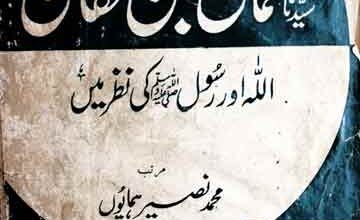 سیدنا عثمان بن عفان
اللہ اور رسول ﷺ کی نظر میں
مرتب
محمد نصیر ہمایوں